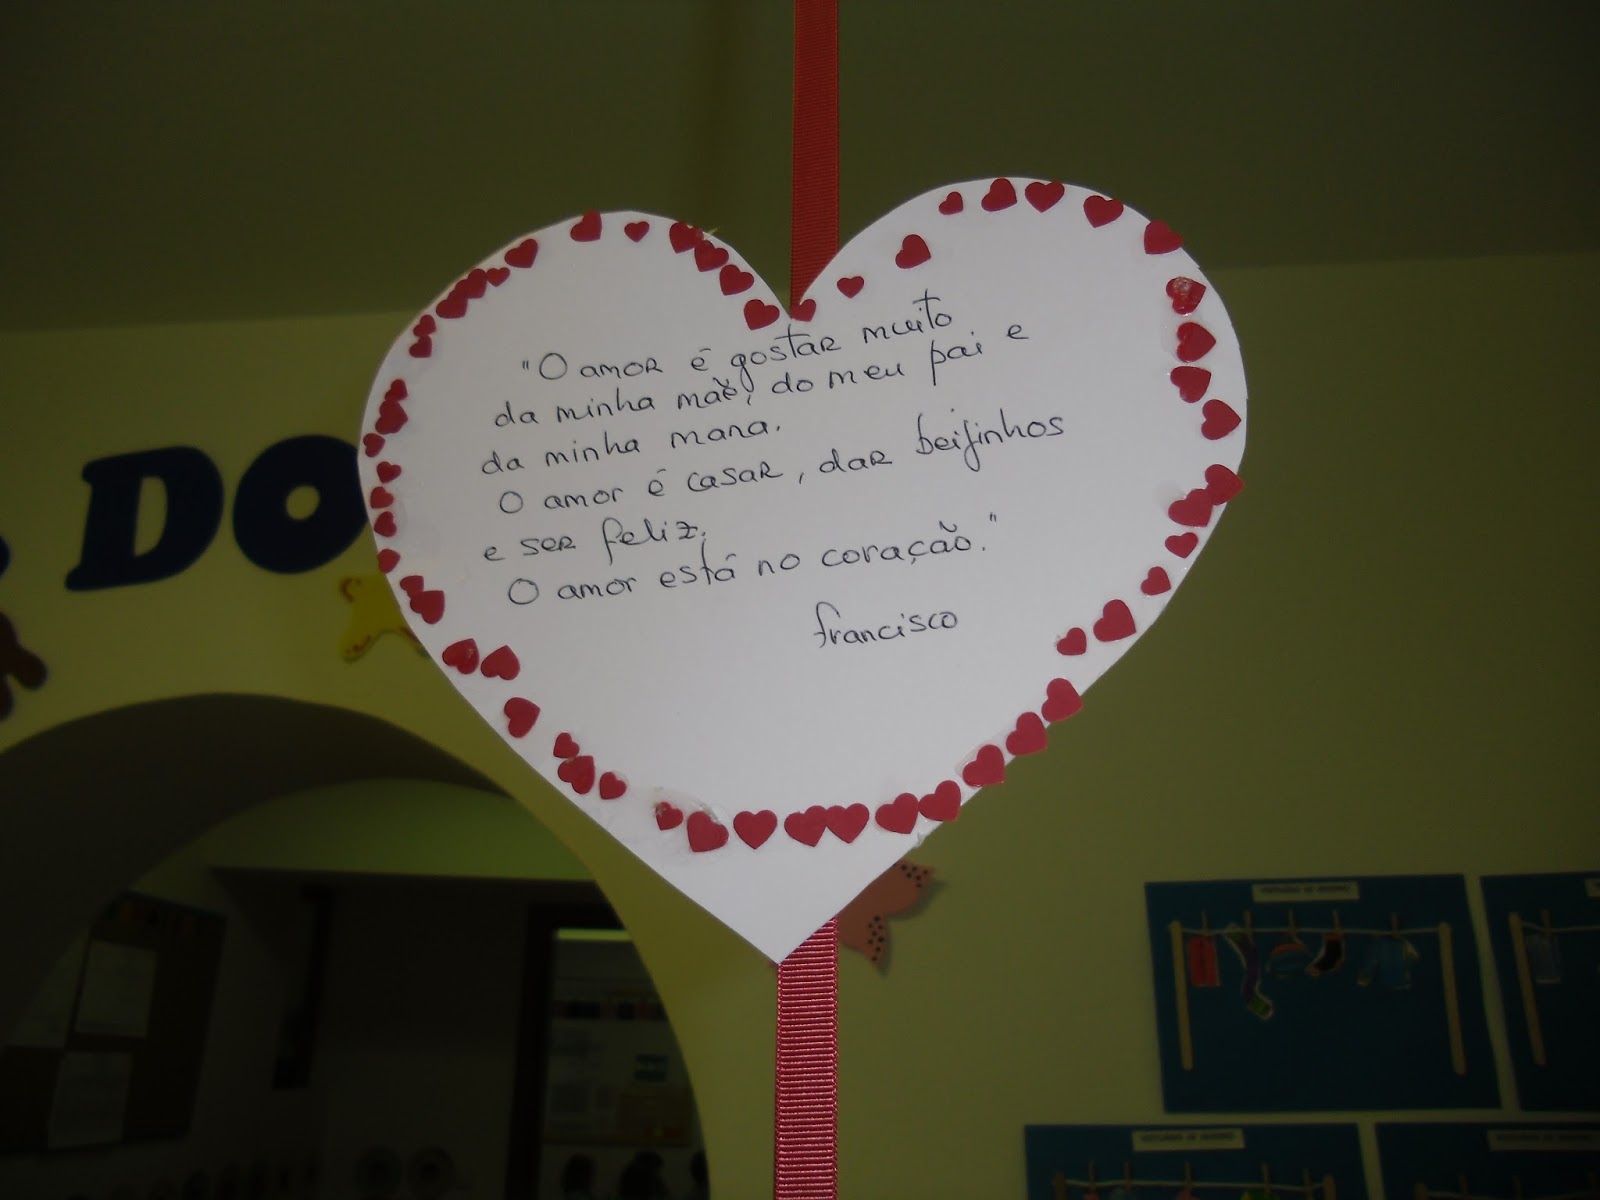 "O amor é gostar muito
da minha mãe, do meu pai e
da minha mana.
O amor é casar, dar beijinhos
e ser feliz.
O amor está no coração."
Francisco
DO